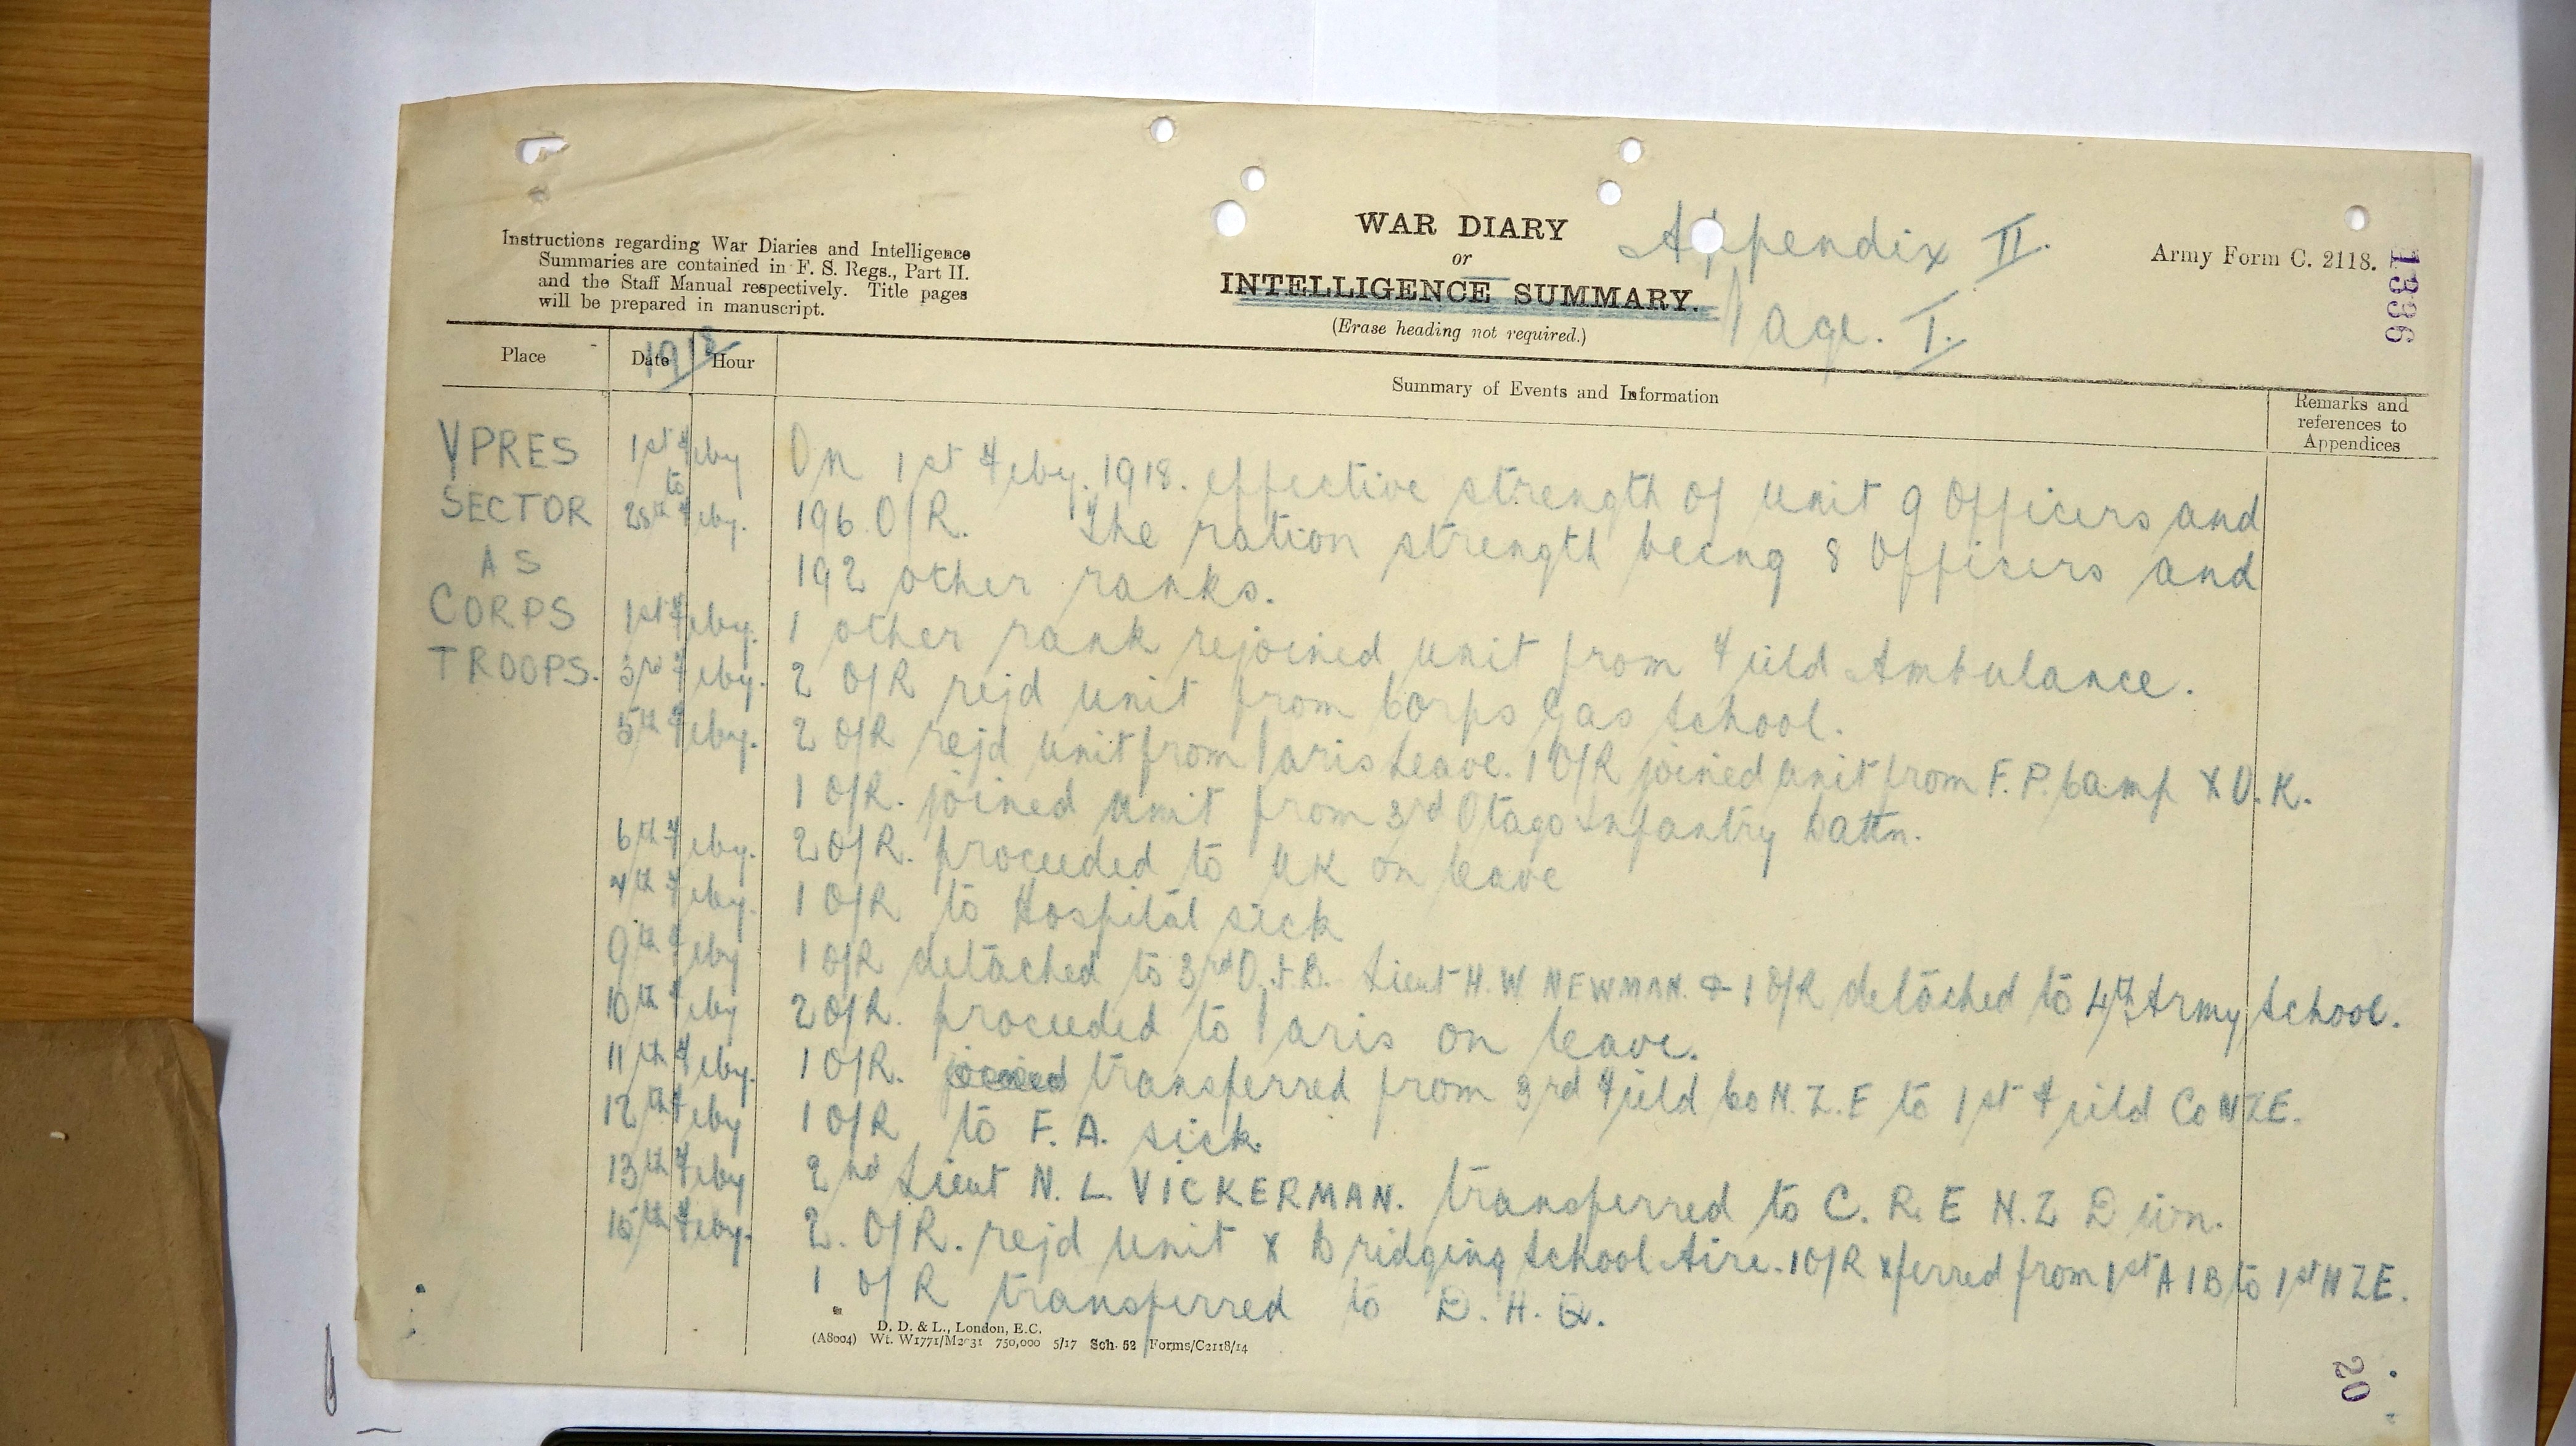 Instructions regarding War Diaries and Intelligence
Summaries are contained in F. S. Regs., Part II.
and the Staff Manual respectively. Title pages
will be prepared in manuscript.
WAR DIARY
or
INTELLIGENCE SUMMARY.
(Erase heading not required.)
Appendix II.
Page. I.
Army Form C. 2118.
1336
Place
Date
Hour
1918
Summary of Events and Information
Remarks and
references to
Appendices
YPRES
SECTOR
AS
CORPS
TROOPS.
1st Feby
to
28th Feby.
On 1st Feby. 1918. effective strength of unit 9 Officers and
196 O/R. The ration strength being 8 Officers and
192 other ranks.
1st Feby. 1 other rank rejoined unit from Field Ambulance.
3rd Feby. 2 O/R rejd unit from Corps Gas School.
5th Feby. 2 O/R rejd unit from Paris Leave. 1 O/R joined unit from F. P. Camp X U. K.
1 O/R. joined unit from 3rd Otago Infantry Battn.
6th Feby. 2 O/R. proceeded to UK on leave
7th Feby. 1 O/R to Hospital sick
9th Feby 1 O/R detached to 3rd O.I.B. Lieut H. W NEWMAN. & 1 O/R detached to 4th Army School.
10th Feby 2 O/R. proceeded to Paris on leave.
11th Feby. 1 O/R. joined transferred from 3rd Field Co N. Z. E to 1st Field Co NZE.
12th Feby 1 O/R to F. A. sick.
13th Feby 2nd Lieut N. L. VICKERMAN. transferred to C. R. E N. Z Divn.
15th Feby. 2. O/R. rejd unit x Bridging School Aire. 1 O/R xferred from 1st A I B to 1st NZE.
1 O/R transferred to D. H. Q.
D. D. & L., London, E.C.
(A8004) Wt. W1771/M2031 750,000 5/17 Sch. 52 Forms/C2118/14
20